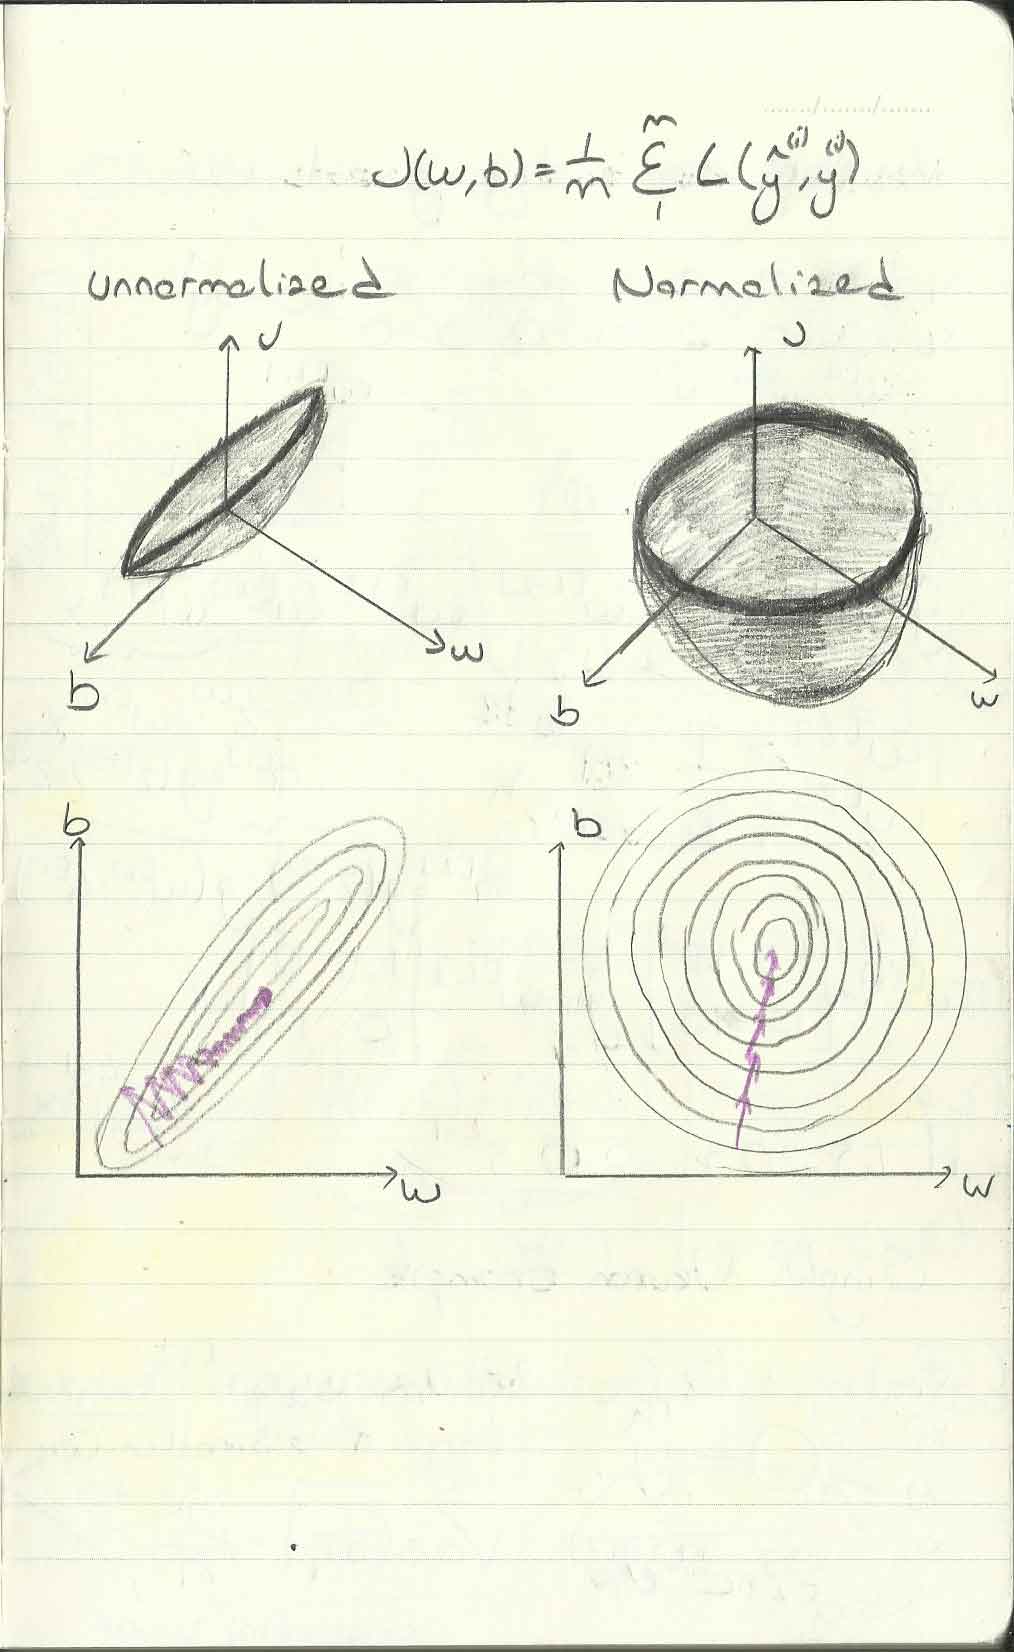 J(w,b) = 1/m Σ₁ᵐ L(ŷ⁽ⁱ⁾, y⁽ⁱ⁾)
Unnormalized
Normalized
J
J
w
b
w
b
b
b
w
w